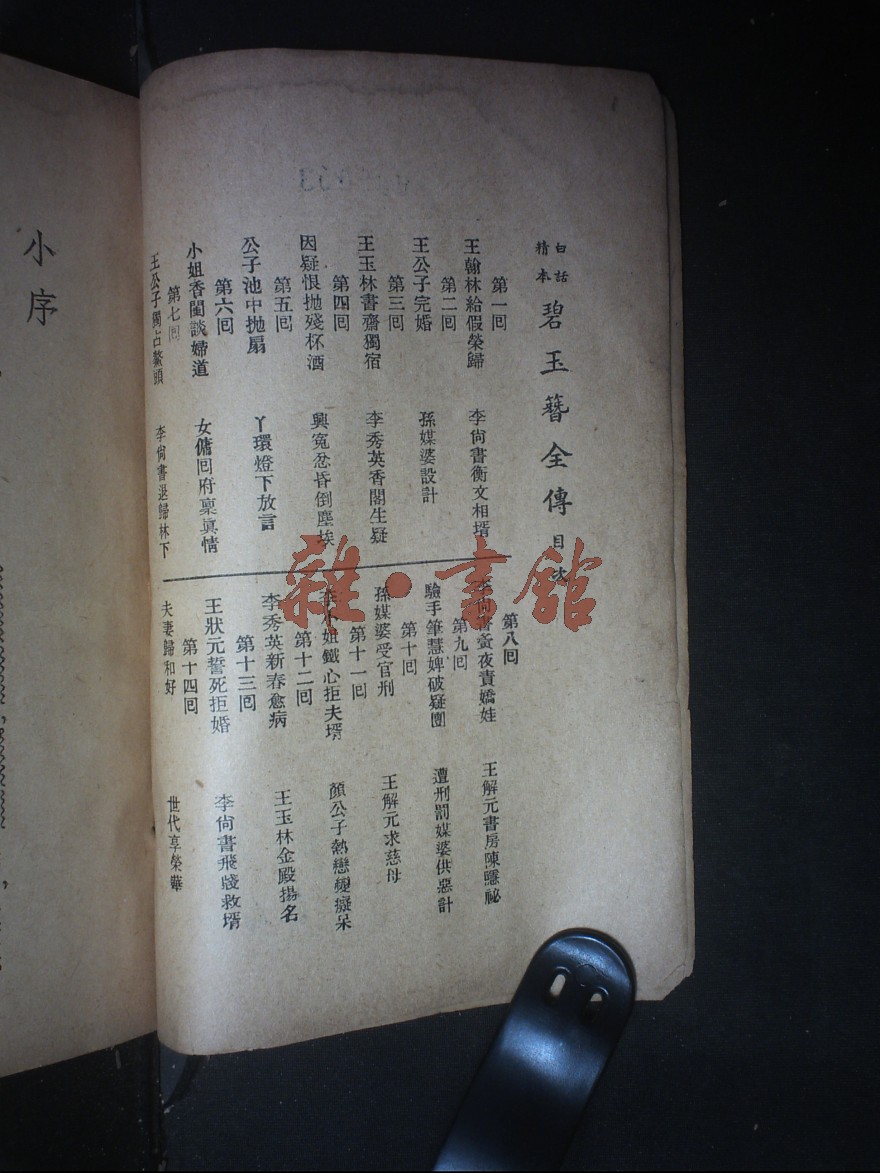 白話
精本
碧玉簪全傳 目次
第一回
王翰林給假榮歸 李尙書衡文相壻
第二回
王公子完婚 孫媒婆設計
第三回
王玉林書齋獨宿 李秀英香閣生疑
第四回
因疑恨拋殘杯酒 興寃忿昏倒塵埃
第五回
公子池中拋扇 丫環燈下放言
第六回
小姐香閨談婦道 女傭回府稟眞情
第七回
王公子獨占鰲頭 李尙書退歸林下
第八回
李尙書夤夜責嬌娃 王解元書房陳隱祕
第九回
驗手筆慧婢破疑團 遭刑罰媒婆供惡計
第十回
孫媒婆受官刑 王解元求慈母
第十一回
小姐鐵心拒夫壻 顏公子熱戀變癡呆
第十二回
李秀英新春愈病 王玉林金殿揚名
第十三回
王狀元誓死拒婚 李尙書飛牋救壻
第十四回
夫妻歸和好 世代享榮華
小序
雜·書館